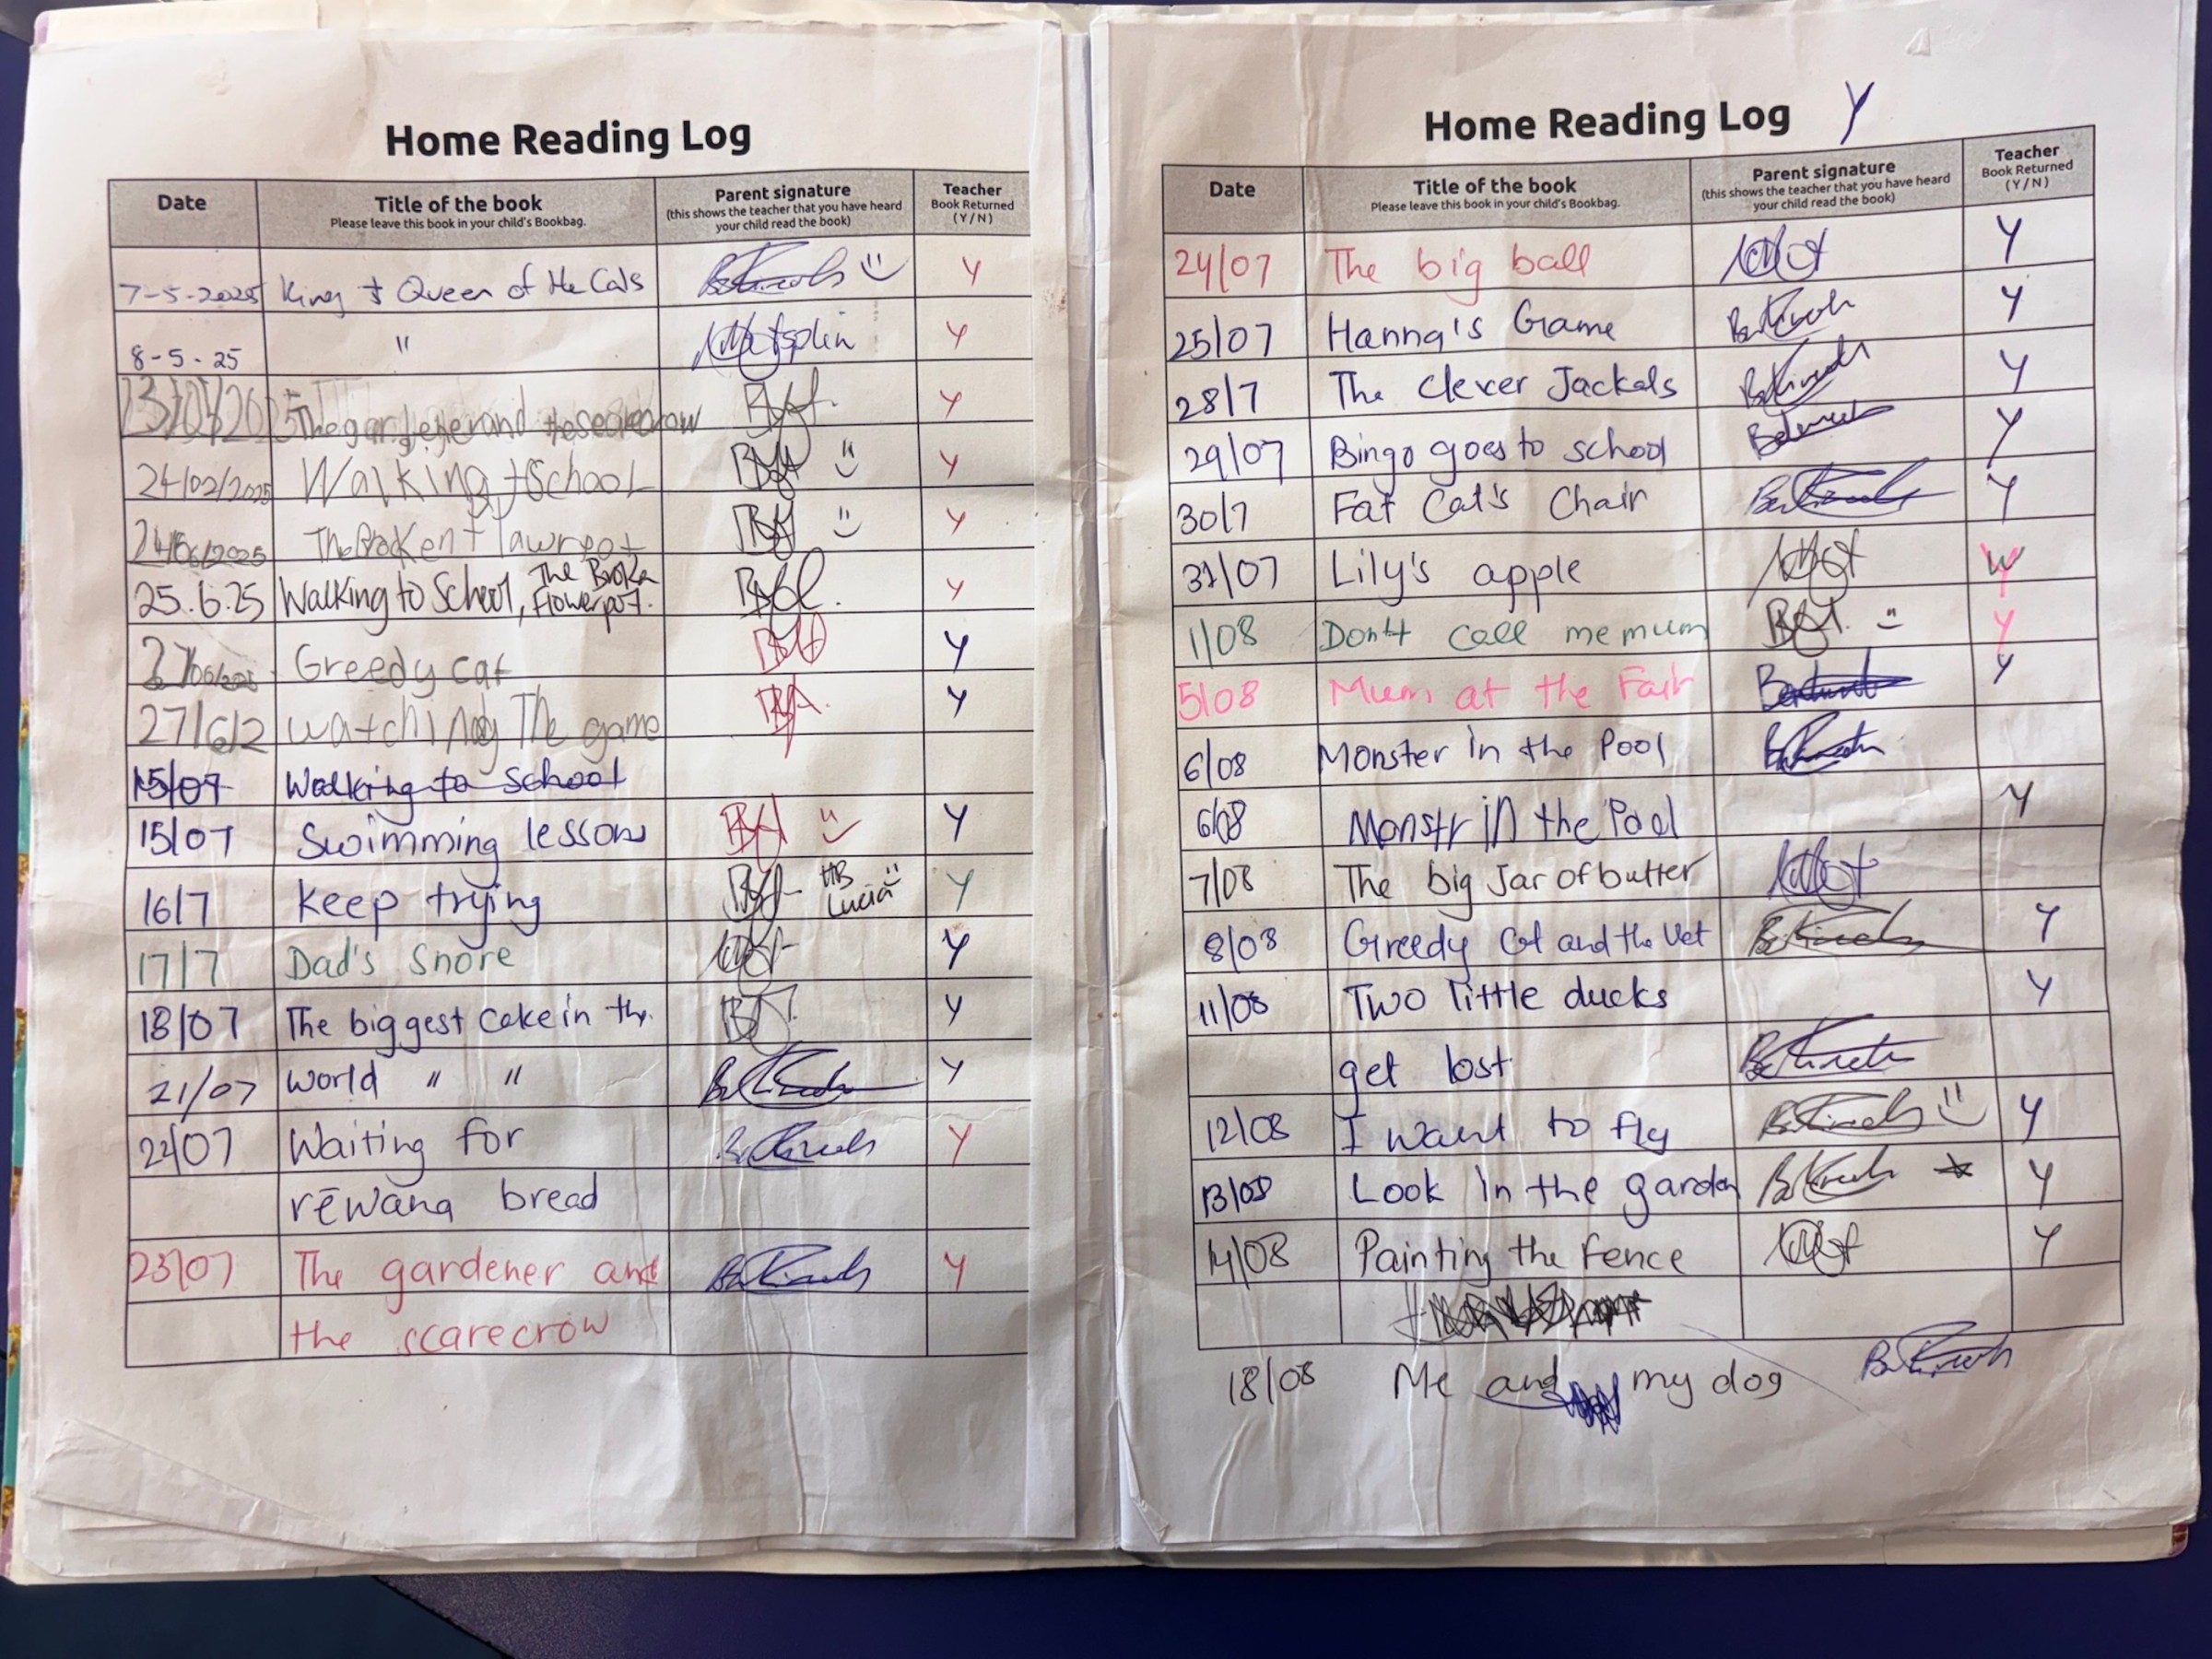 Home Reading Log
Date Title of the book Parent signature Teacher
Please leave this book in your child's Bookbag. (this shows the teacher that you have heard your child read the book) Book Returned (Y/N)
7-5-2025 King & Queen of the Cats Y
8-5-25 " Y
The gardener and the scarecrow Y
24/02/2025 Walking to School Y
24/06/2025 The Broken flawrpot Y
25.6.25 Walking to School, The Broken Flowerpot. Y
Greedy cat Y
27/6/2 watching The game Y
15/07 Walking to school
15/07 Swimming lessons Y
16/7 Keep trying HB Lucia Y
17/7 Dad's Snore Y
18/07 The biggest cake in the Y
21/07 world " " Y
22/07 Waiting for Y
rēwana bread
23/07 The gardener and Y
the scarecrow
Home Reading Log Y
Date Title of the book Parent signature Teacher
Please leave this book in your child's Bookbag. (this shows the teacher that you have heard your child read the book) Book Returned (Y/N)
24/07 The big ball Y
25/07 Hanna's Game Y
28/7 The clever Jackals Y
29/07 Bingo goes to school Y
30/7 Fat Cat's Chair Y
31/07 Lily's apple Y
1/08 Don't call me mum Y
5/08 Mum at the Fair Y
6/08 Monster in the Pool
6/08 Monstr in the Pool Y
7/08 The big Jar of butter
8/08 Greedy Cat and the Vet Y
11/08 Two little ducks Y
get lost
12/08 I want to fly Y
13/08 Look in the garden Y
14/08 Painting the fence Y
18/08 Me and my dog